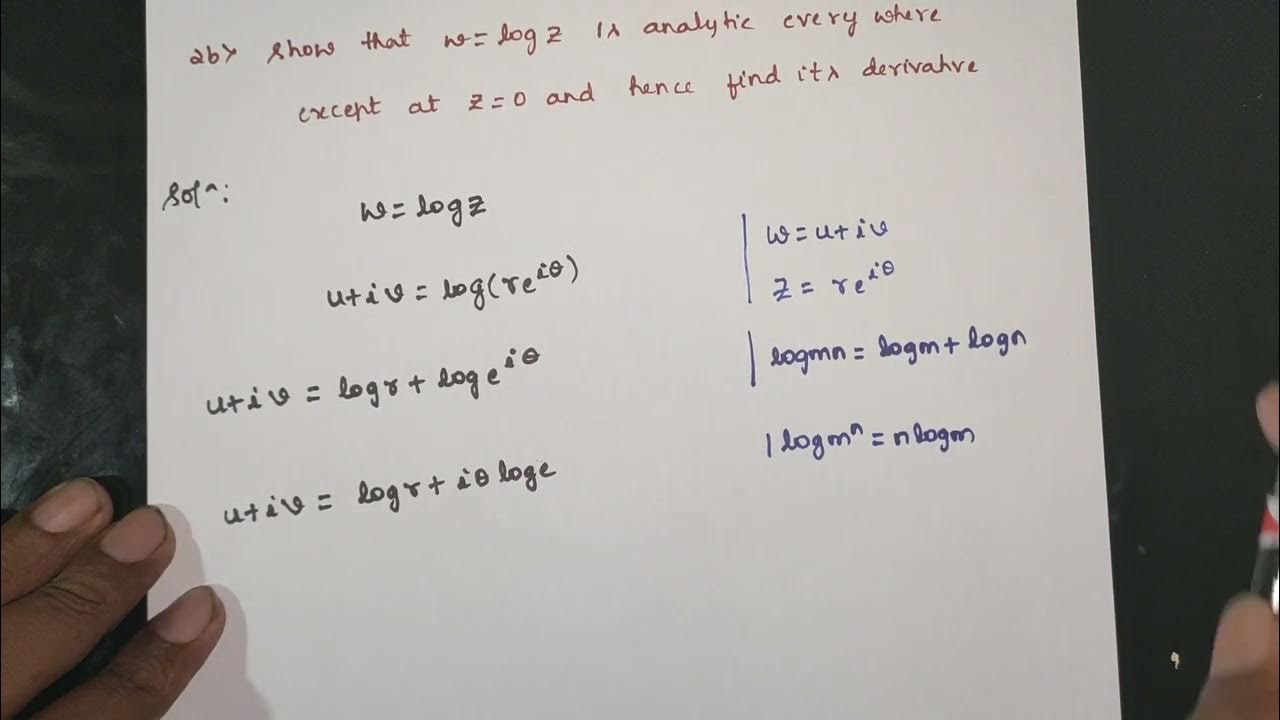 2b> Show that w = log z is analytic every where
except at z = 0 and hence find its derivative
Solⁿ:
w = log z
u + iv = log(re^{iθ})
u + iv = log r + log e^{iθ}
u + iv = log r + iθ log e
w = u + iv
z = re^{iθ}
log mn = log m + log n
log mⁿ = n log m